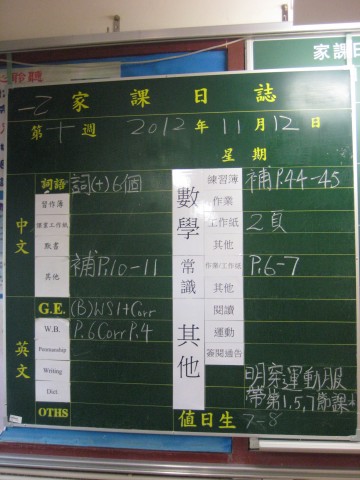 心聆聽
家課日
一乙 家課日誌
第十週 2012年11月12日
星期
中文
詞語 詞(十)6個
習作簿
默書
其他 補P.10-11
英文
G.E. (B)WS1+Corr
W.B. P.6 Corr P.4
Penmanship
Writing
Dict.
OTHS
數學
練習簿 補P.44-45
作業
工作紙 2頁
其他
常識
作業/工作紙 P.6-7
其他
其他
閱讀
運動
簽閱通告
明穿運動服
帶第1,5,7節課本
值日生 7-8